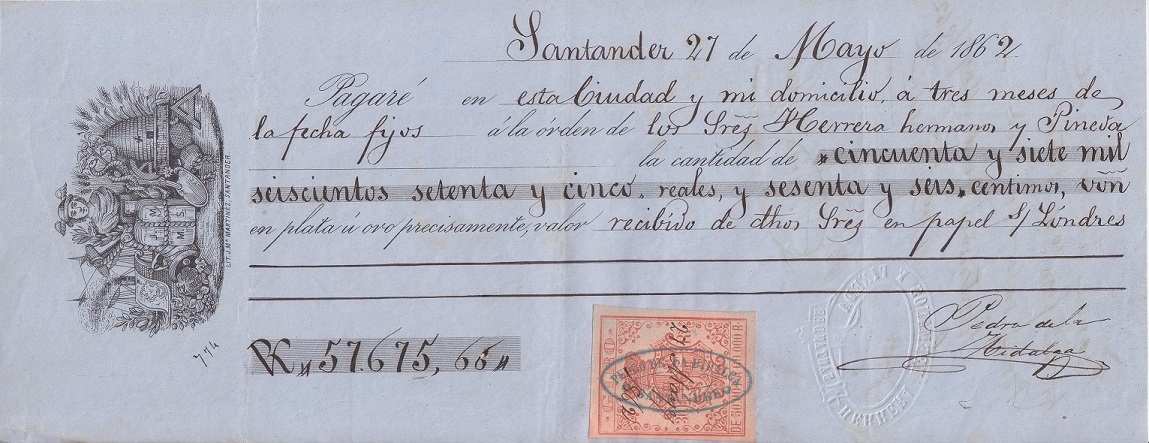 Santander 27 de Mayo de 1862
Pagaré en esta Ciudad y mi domicilio, á tres meses de
la fecha fijos á la órden de los Sres Herrera hermanos y Pineda
la cantidad de cincuenta y siete mil
seiscientos setenta y cinco, reales, y sesenta y seis, centimos, von
en plata ú oro precisamente, valor recibido de dhos Sres en papel s/ Lóndres
Rv 57.675,66
Pedro de la
Hidalga
774
LIT. J. Mª MARTINEZ, SANTANDER
27 Mayo 62